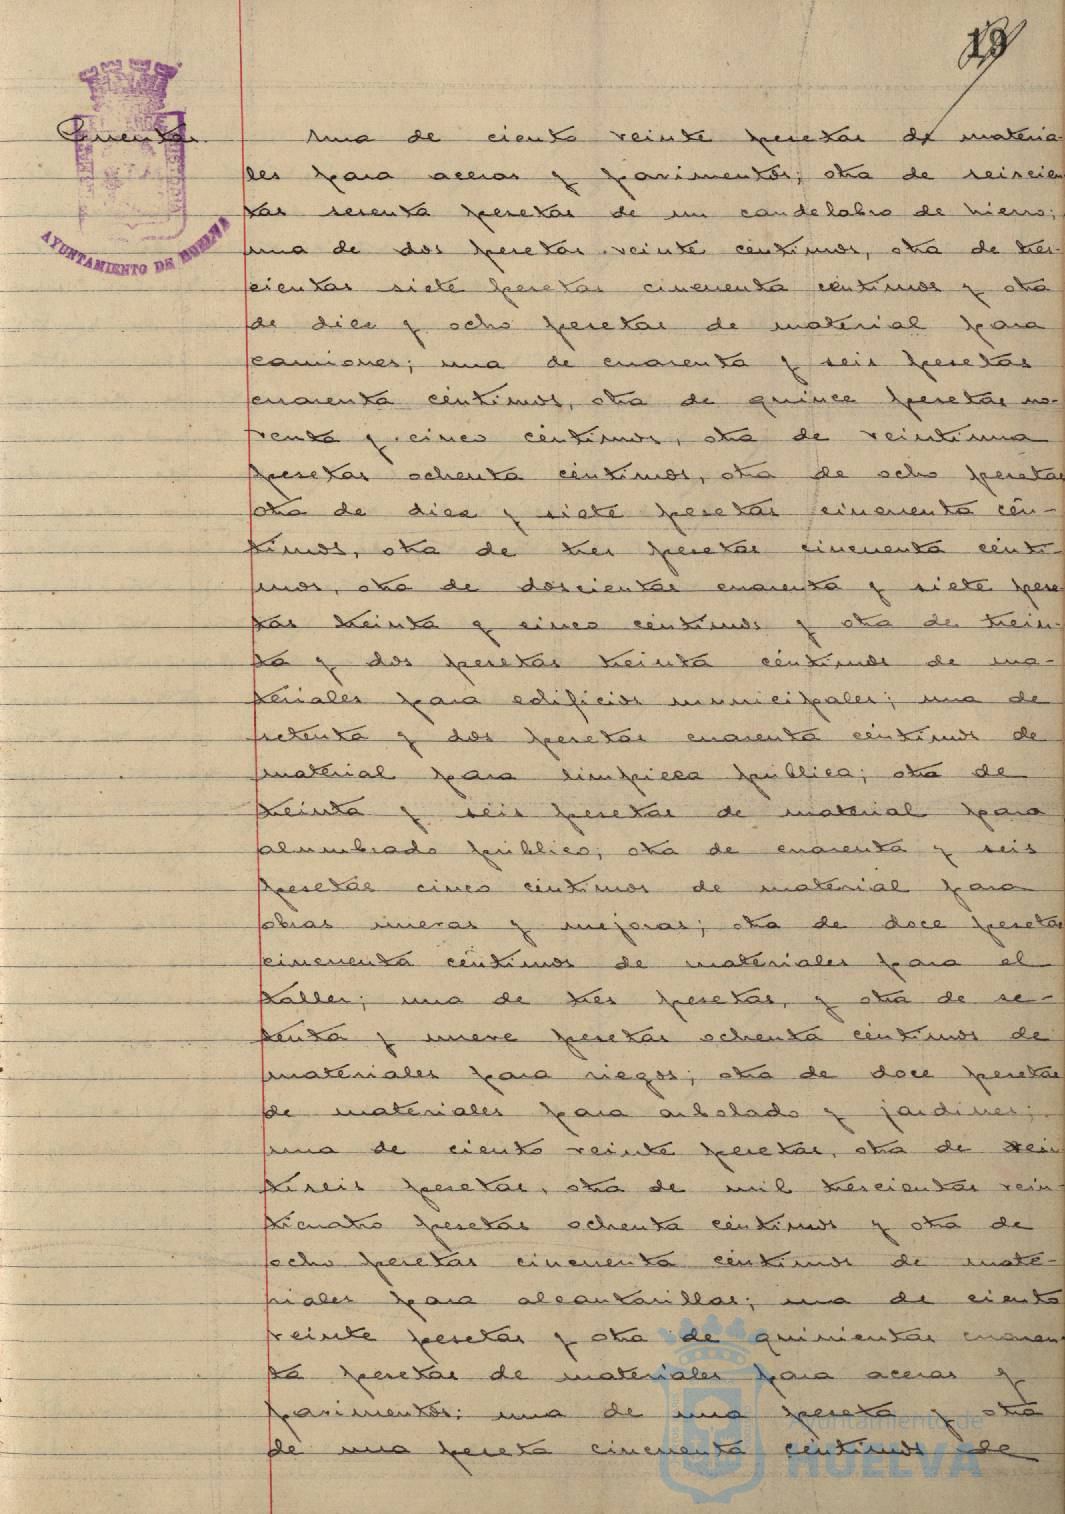 19
Cuentas. Una de ciento veinte pesetas de materia-
les para aceras y pavimentos; otra de seiscien
tas sesenta pesetas de un candelabro de hierro;
una de dos pesetas veinte céntimos, otra de tres-
cientas siete pesetas cincuenta céntimos y otra
de diez y ocho pesetas de material para
camiones; una de cuarenta y seis pesetas
cuarenta céntimos, otra de quince pesetas no-
venta y cinco céntimos, otra de veintiuna
pesetas ochenta céntimos, otra de ocho pesetas
otra de diez y siete pesetas cincuenta cén-
timos, otra de tres pesetas cincuenta cénti-
mos, otra de doscientas cuarenta y siete pese
tas treinta y cinco céntimos y otra de trein-
ta y dos pesetas treinta céntimos de ma-
teriales para edificios municipales; una de
setenta y dos pesetas cuarenta céntimos de
material para limpieza pública; otra de
treinta y seis pesetas de material para
alumbrado público; otra de cuarenta y seis
pesetas cinco céntimos de material para
obras nuevas y mejoras; otra de doce pesetas
cincuenta céntimos de materiales para el
taller; una de tres pesetas, y otra de se-
tenta y nueve pesetas ochenta céntimos de
materiales para riegos; otra de doce pesetas
de materiales para arbolado y jardines;
una de ciento veinte pesetas, otra de vein
tiseis pesetas, otra de mil trescientas vein-
ticuatro pesetas ochenta céntimos y otra de
ocho pesetas cincuenta céntimos de mate-
riales para alcantarillas; una de ciento
veinte pesetas y otra de quinientas cuaren-
ta pesetas de materiales para aceras y
pavimentos; una de una peseta y otra
de una peseta cincuenta céntimos de
AYUNTAMIENTO DE HUELVA
Ayuntamiento de
HUELVA